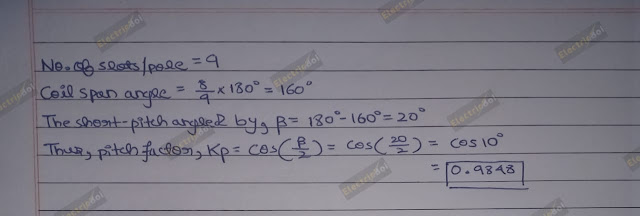 No. of slots/pole = 9
Coil span angle = 8/9 x 180° = 160°
The short-pitch angled by, β = 180° - 160° = 20°
Thus, pitch factor, Kp = cos(β/2) = cos(20/2) = cos 10°
= 0.9848